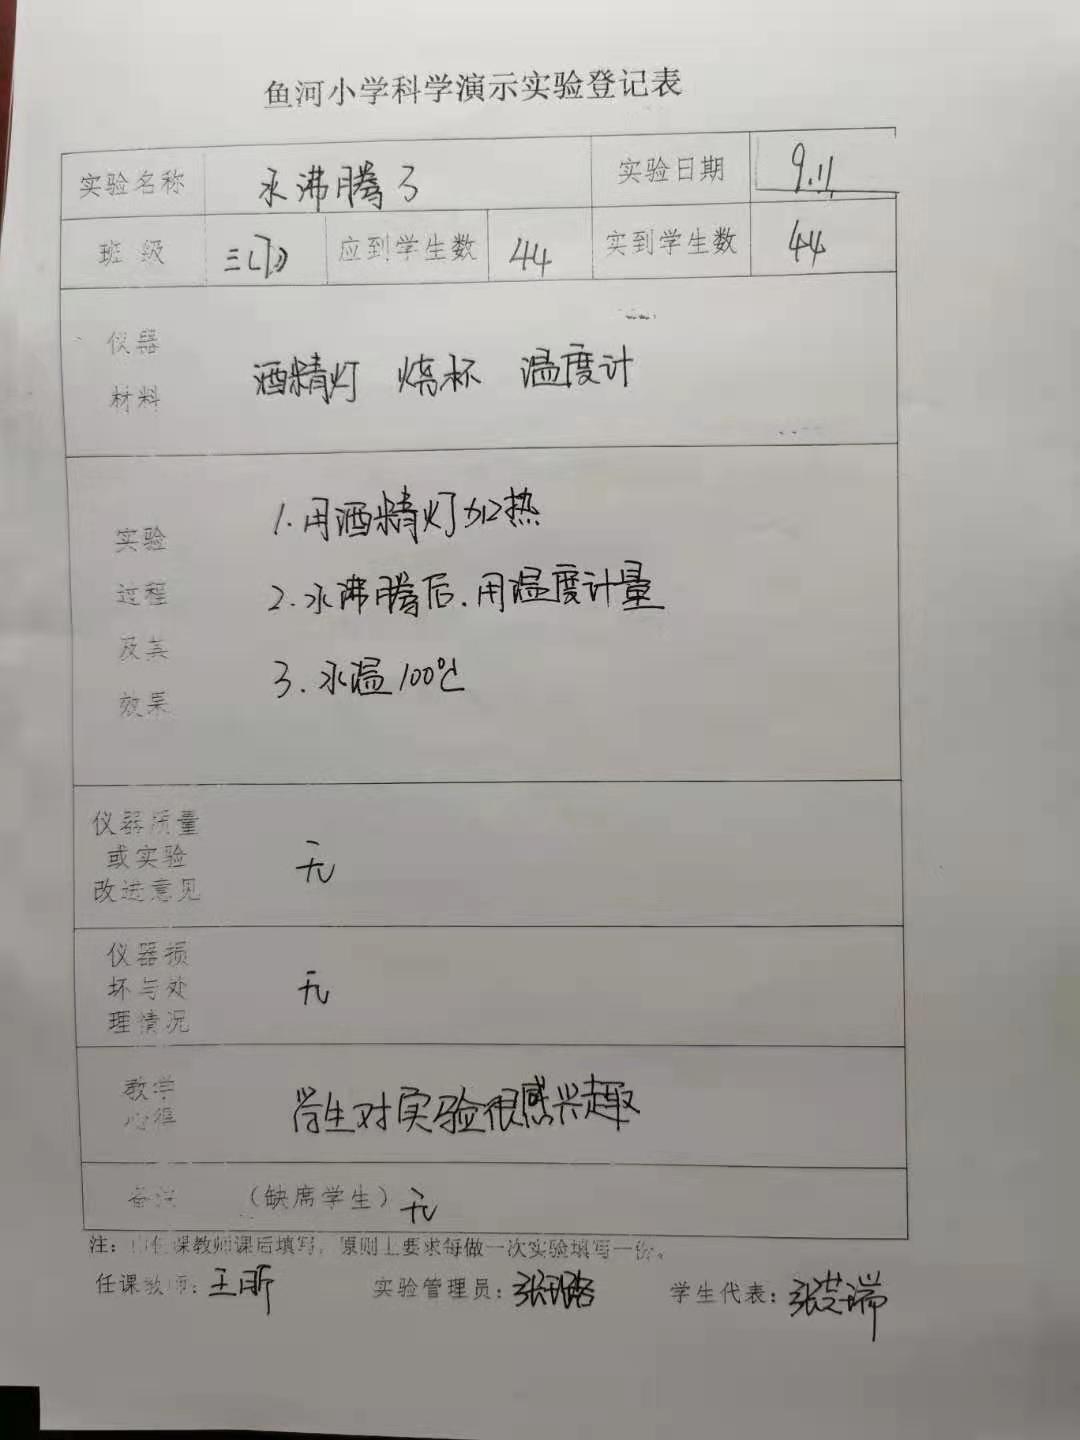 鱼河小学科学演示实验登记表
实验名称 水沸腾了 实验日期 9.11
班 级 应到学生数 44 实到学生数 44
仪器
材料
酒精灯 烧杯 温度计
实验
过程
及其
效果
1.用酒精灯加热
2.水沸腾后.用温度计量
3.水温100℃
仪器质量
或实验
改进意见
无
仪器损
坏与处
理情况
无
教学
心得
学生对实验很感兴趣
备注 (缺席学生) 无
注：由任课教师课后填写，原则上要求每做一次实验填写一份。
任课教师: 王昕 实验管理员: 张 学生代表: 张芸瑞